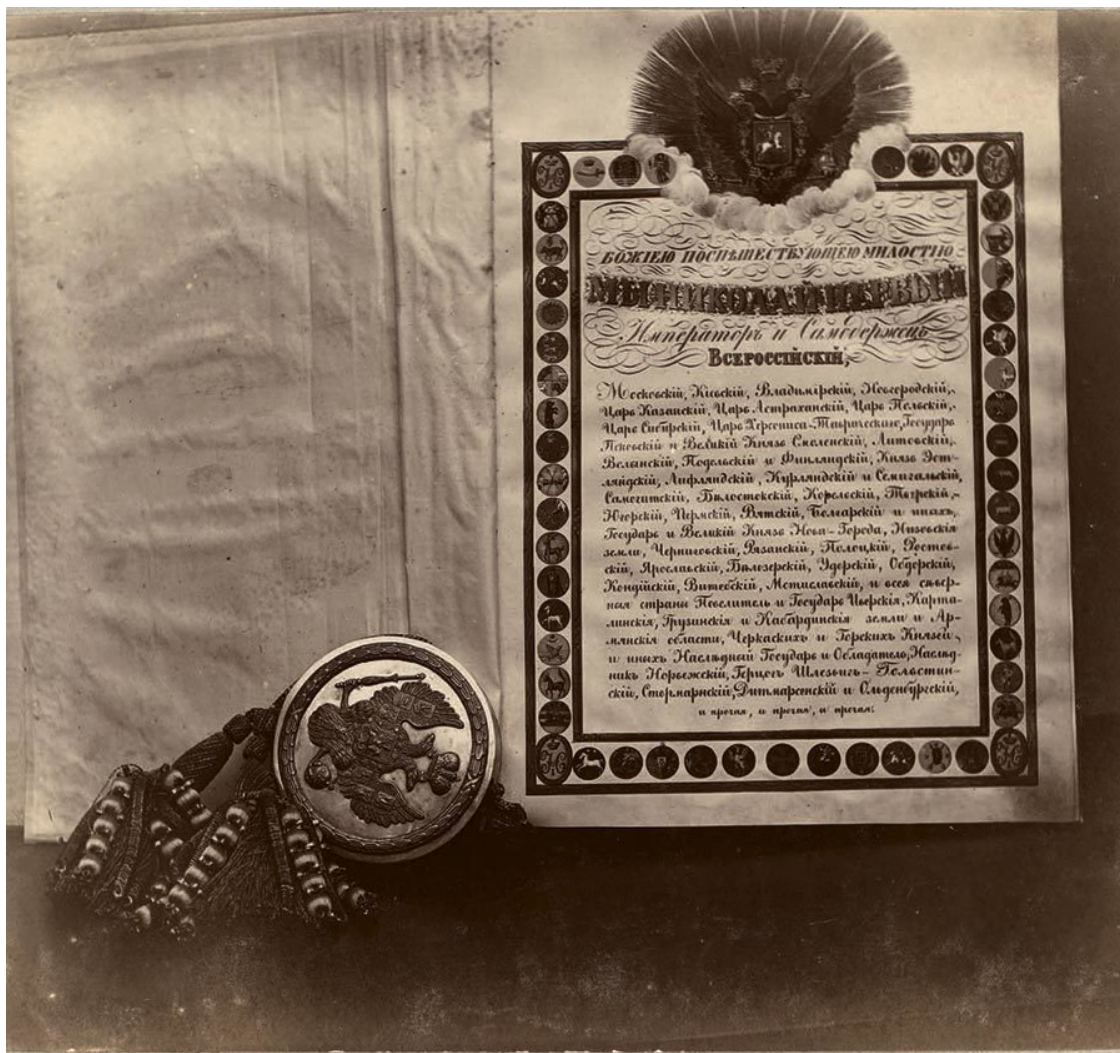 БОЖІЕЮ ПОСПѢШЕСТВУЮЩЕЮ МИЛОСТІЮ
МЫ НИКОЛАЙ ПЕРВЫЙ
Императоръ и Самодержецъ
ВСЕРОССІЙСКІЙ,
Московскій, Кіевскій, Владимірскій, Новогородскій,
Царь Казанскій, Царь Астраханскій, Царь Польскій,
Царь Сибирскій, Царь Херсониса-Таврическаго, Государь
Псковскій и Великій Князь Смоленскій, Литовскій,
Волынскій, Подольскій и Финляндскій, Князь Эст-
ляндскій, Лифляндскій, Курляндскій и Семигальскій,
Самогитскій, Бѣлостокскій, Корельскій, Тверскій,
Югорскій, Пермскій, Вятскій, Болгарскій и иныхъ,
Государь и Великій Князь Нова-Города, Низовскія
земли, Черниговскій, Рязанскій, Полоцкій, Ростов-
скій, Ярославскій, Бѣлозерскій, Удорскій, Обдорскій,
Кондійскій, Витебскій, Мстиславскій, и всея сѣвер-
ныя страны Повелитель и Государь Иверскія, Карта-
линскія, Грузинскія и Кабардинскія земли и Ар-
мянскія области, Черкаскихъ и Горскихъ Князей,
и иныхъ Наслѣдный Государь и Обладатель, Наслѣд-
никъ Норвежскій, Герцогъ Шлезвигъ-Голстин-
скій, Стормарнскій, Дитмарсенскій и Ольденбургскій,
и прочая, и прочая, и прочая.